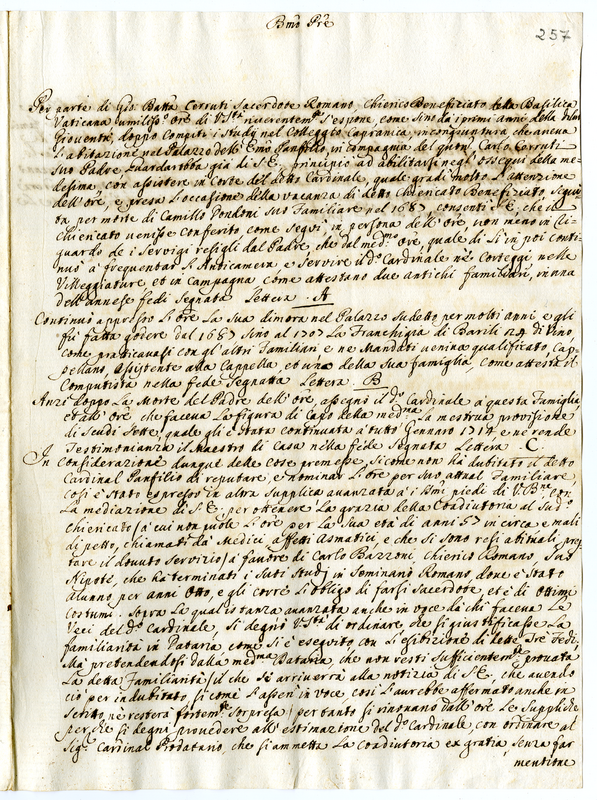 Bmo Pre
257
Per parte di Gio: Batta Cerruti Sacerdote Romano, Chierico Beneficiato della Basilica
Vaticana umiliss.o ore di V. Sta riverentem.te s'espone, come sino da i primi anni della sua
Gioventù, doppo Compiti i Studij nel Colleggio Capranica, in congiuntura che aveva
L'abitazione nel Palazzo dell' Emo Panfilio in compagnia del quon. Carlo Cerruti
suo Padre, Guardarobba già di S. E. principiò ad abilitarsi negl'ossequi della me-
desima, con assistere in Corte del detto Cardinale, quale gradì molto L'attenzione
dell'ore, e presa L'occasione della vacanza di detto Chiericato Beneficiato, segui-
ta per morte di Camillo Dondoni suo Familiare nel 1687, consentì S. E. che il
Chiericato venisse Conferito come seguì in persona dell'ore, non meno in ri-
guardo de i servigi resigli dal Padre, che dal med.mo ore, quale di lì in poi conti-
nuò à frequentar L'Anticamera, e servire il d.o Cardinale ne' Corteggi nelle
Villeggiature, et in Campagna come attestano due antichi familiari, in una
dell'annesse fedi segnata Lettera . A
Continuò appresso L'ore La sua dimora nel Palazzo sudetto per molti anni e gli
fù fatta godere dal 1687 sino al 1707 La Franchigia di Barili 24 di vino
come praticavasi con gl'altri Familiari e ne Mandati veniva qualificato, Cap-
pellano, assistente alla Cappella, et uno della sua famiglia, come attesta il
Computista nella fede segnata Lettera . B
Anzi doppo La Morte del Padre dell'ore, assegnò il d.o Cardinale à questa Famiglia,
et all'ore che faceva La figura di Capo della med.ma La mestrua provisione
di scudi sette, quale gli è stata continuata à tutto Gennaro 1714, e ne rende
Testimonianza il Maestro di Casa nella fede segnata Lettera . C.
In Considerazione dunque delle cose premesse, sicome non hà dubitato il detto
Cardinal Panfilio di reputare, e nominar L'ore per suo attual Familiare,
così è stato espresso in altra supplica avanzata à i Bmi piedi di V. Bne con
La mediazione di S. E. per ottenere La grazia della Coadiutoria al sud.o
Chiericato (à cui non puole L'ore per La sua età di anni 57 in circa e mali
di petto, chiamati da Medici affetti asmatici, e che si sono resi abituali, pres-
tare il dovuto servizio) à favore di Carlo Bazzoni, Chierico Romano, suo
Nipote, che hà terminati i suoi studj in Seminario Romano, dove è stato
alunno per anni otto, e gli corre L'obligo di farsi sacerdote, et è di ottimi
Costumi. Sopra Le qual istanza avanzata anche in voce da chi faceva Le
Veci del d.o Cardinale, si degnò V. Sta di ordinare, che si giustificasse La
familiarità in Dataria, come si è eseguito, con L'esibizione di dette tre fedi;
Mà pretendendosi dalla med.ma Dataria, che non resti sufficientem.te provata
La detta Familiarità (il che se arriverà alla notizia di S. E. che avendo
ciò per indubitato, si come L'asserì in voce, così L'avrebbe affermato anche in
scritto, ne resterà fortem.te sorpresa) per tanto si rinovano dall'ore Le suppliche
perche si degni provedere all'estimazione del d.o Cardinale, con ordinare al
Sig.r Cardinal Prodatario, che si ammetta La Coadiutoria ex gratia, senza far
mentione